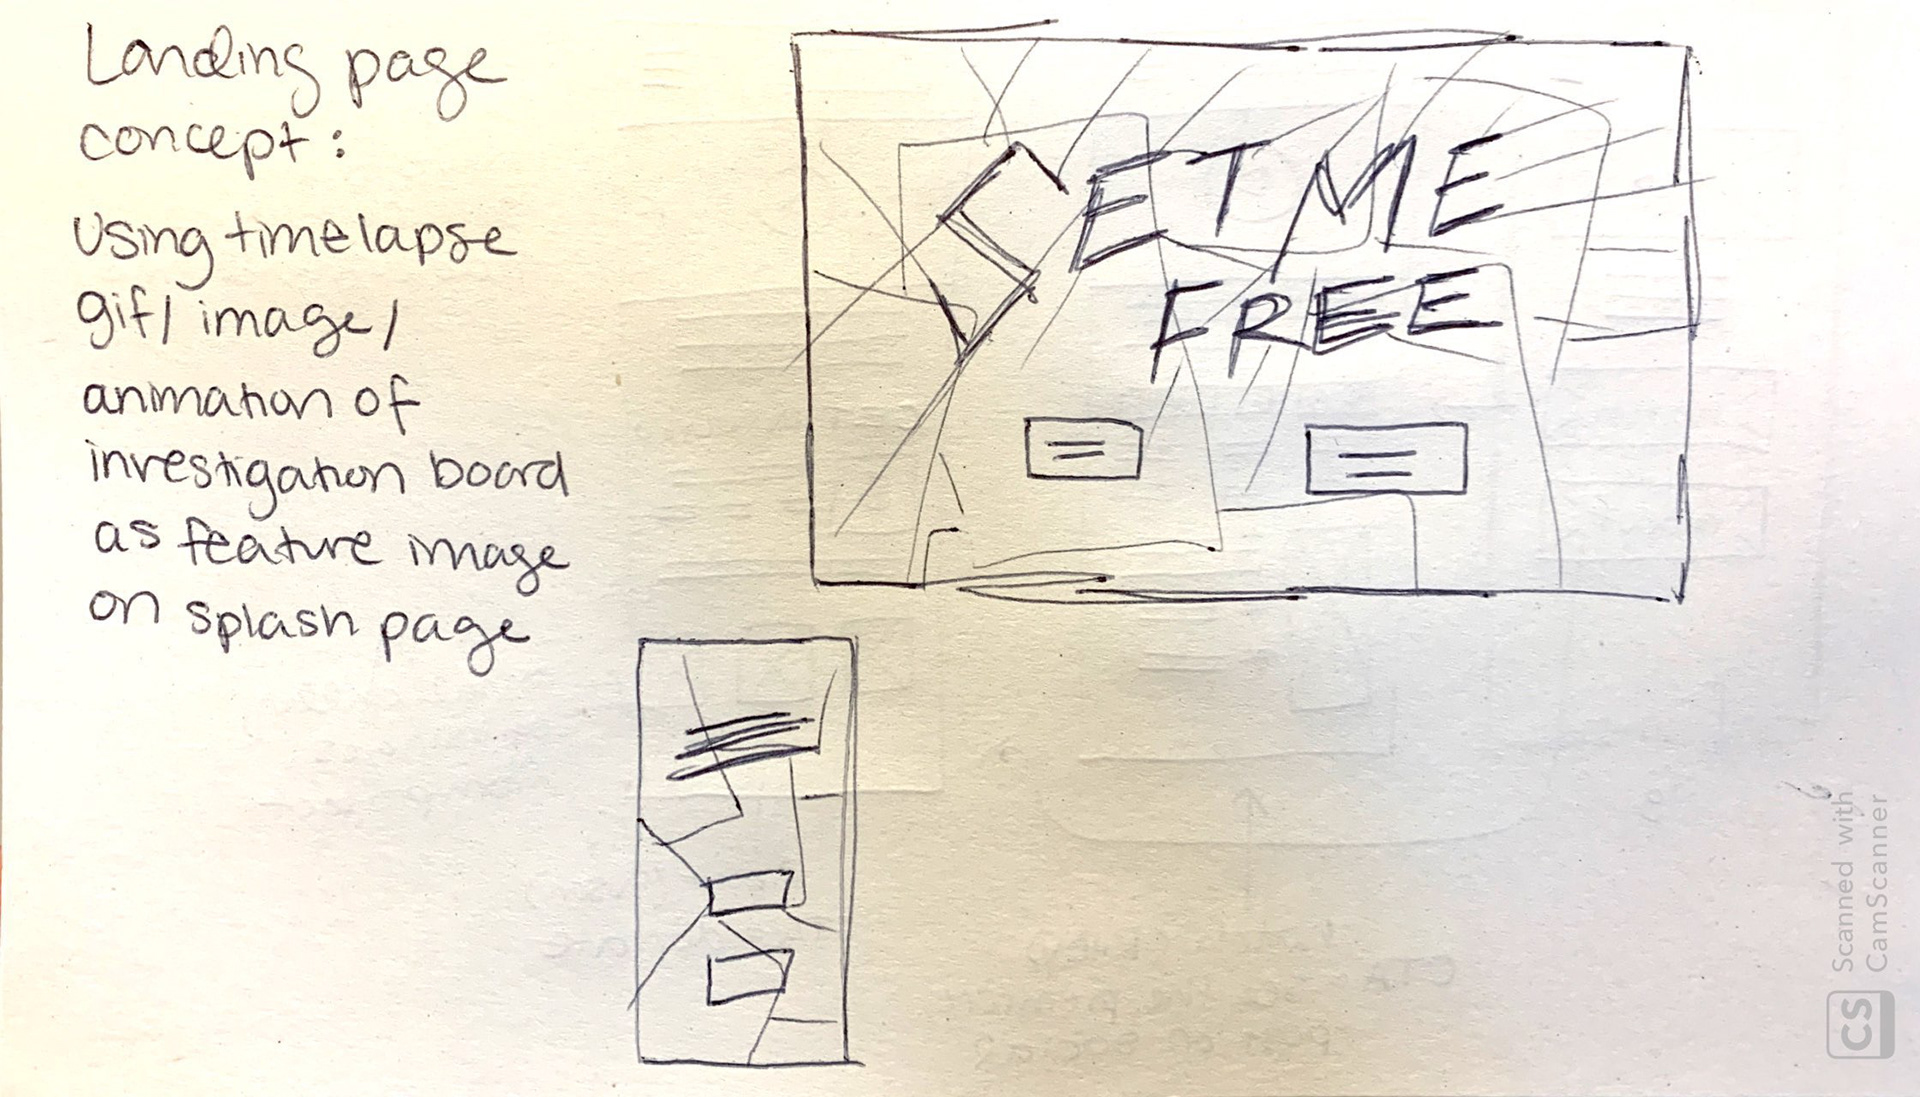 Landing page
concept:
Using timelapse
gif/ image/
animation of
investigation board
as feature image
on splash page
SET ME
FREE
Scanned with
CamScanner
CS